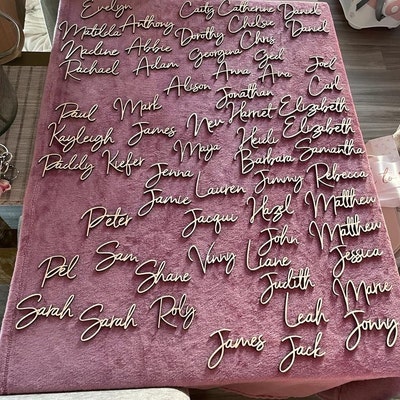 Evelyn Caity Catherine Daniel
Matilda Anthony Dorothy Chelsie Daniel
Nadine Abbie Georgina Chris
Rachael Adam Anna Ged Ana Joel
Alison Jonathan Carl
Paul Mark Nev Harriet Elizabeth
Kayleigh James Maya Heidi Elizabeth
Paddy Kiefer Barbara Samantha
Jenna Lauren Jimmy Rebecca
Jamie Jacqui Hazel Matthew
Peter John Matthew
Sam Vinny Liane Jessica
Pél Shane Judith Marie
Sarah Sarah Roly Leah Jonny
James Jack